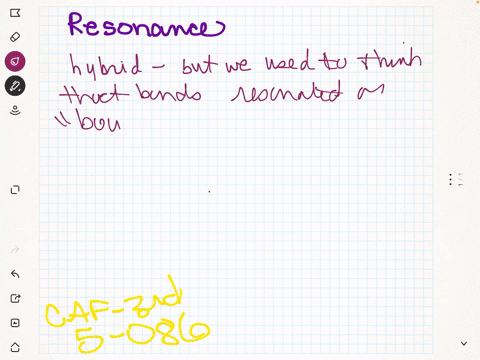 Resonance
hybrid - but we used to think
that bonds resonated or
"bou
CAF-3rd
5-086